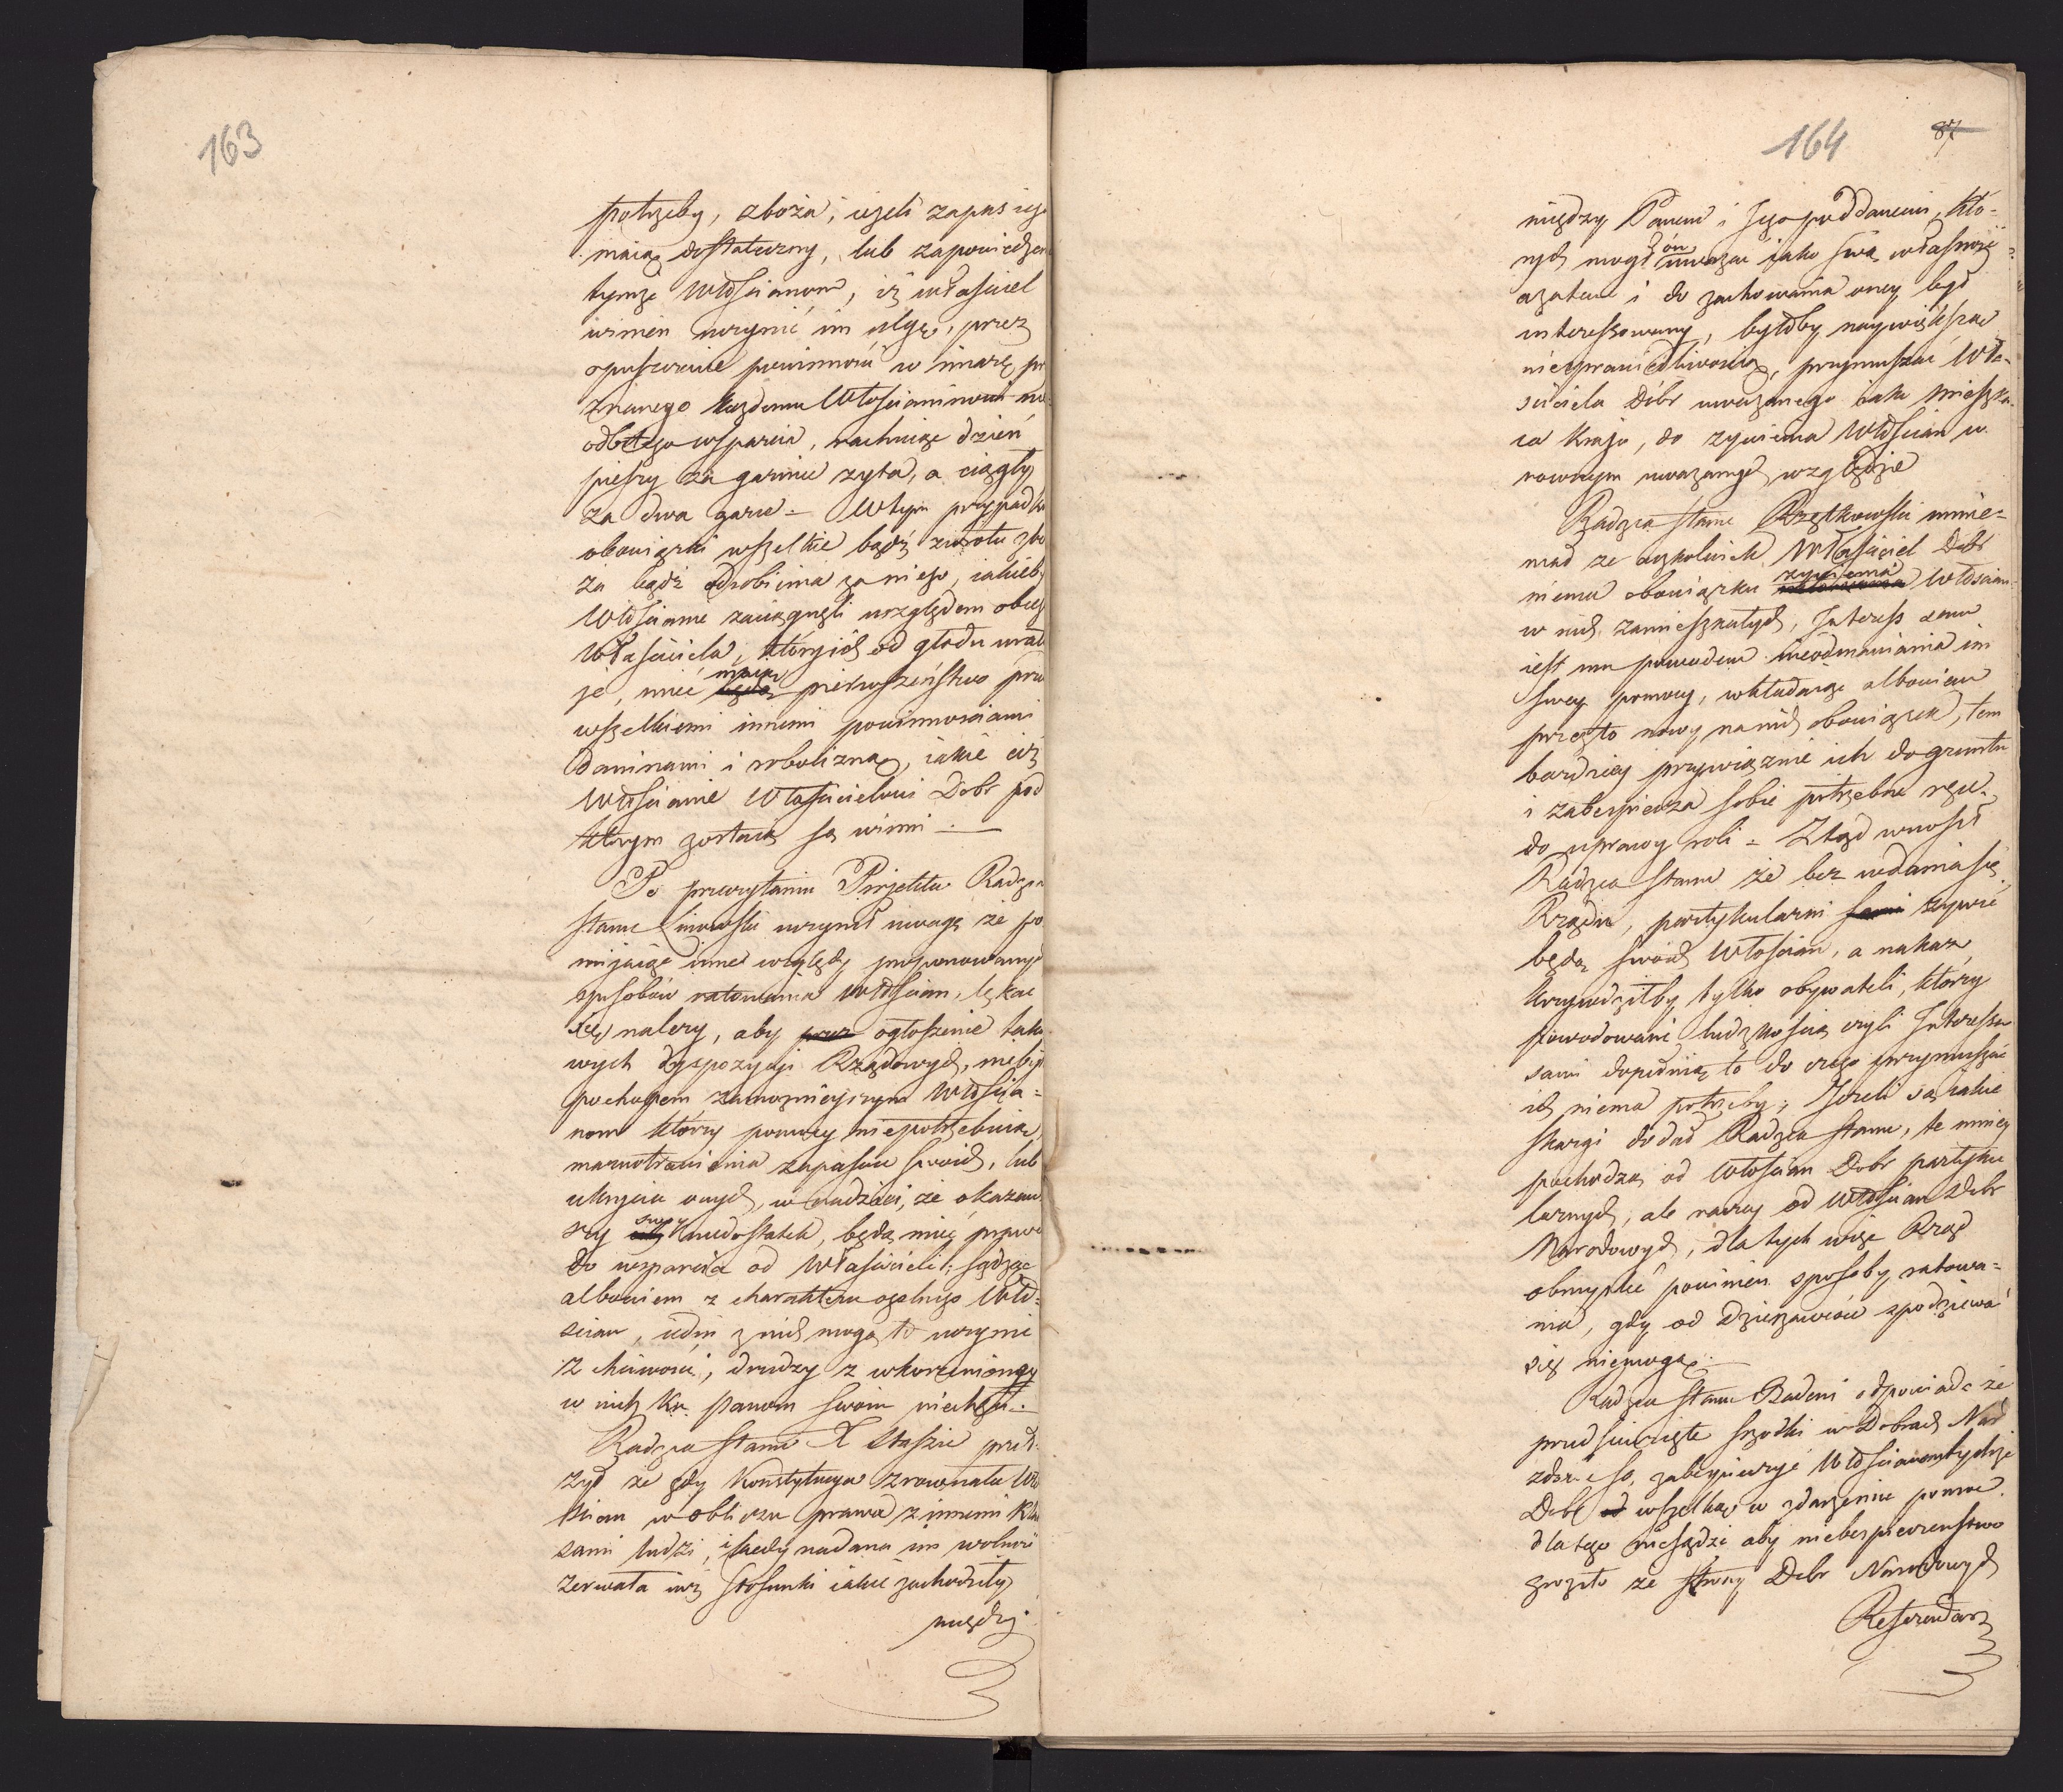 163
potrzeby, zboża, iezeli zapas iego
maią dostateczny, lub zapowiedzen
tymze Włoscianom, iż własciciel
winien uczynić im ulgę, przez
opuszczenie powinnosci w miarę pr
znanego kazdemu Włoscianinowi nie
odbitego wsparcia, rachuiąc dzień
pieszy za garniec zyta, a ciągły
za dwa garce – W tym przypadku
obowiązki wszelkie bądź zwrotu zbo
ża bądź odrobienia za niego, iakieby
Włoscianie zaciągneli względem obcego
Własciciela, który ich od głodu uratu
je, mieć maią pierwszeństwo przed
wszelkiemi innemi powinnosciami
daninami i robocizną, iakie ciż
Włoscianie Włascicielowi Dobr pod
którym zostaią są winni –
Po przeczytaniu Projektu Radzca
stanu Linowski uczynił uwagę że po
mijaiąc inne względy proponowanych
sposobów ratowania Włoscian, lękać
się nalezy, aby przez ogłoszenie tako
wych dyspozycyi Rządowych, nie być
pochopem zamoznieyszym Włoscia=
nom którzy pomocy niepotrzebuią,
marnotrawienia zapasów swoich, lub
ukrycia onych, w nadziei, że okazaw
szy swoy niedostatek, będą mieć prawo
do wsparcia od Włascicieli; sądząc
albowiem z charakteru ogolnego Wło=
scian, iedni z nich mogą to uczynić
z chciwosci, drudzy z wkorzenioney
w nich ku panom swoim niechęci.
Radzca stanu X Staszic przeło
zył ze gdy Konstytucya zrownała Wło
scian w obliczu prawa z innemi Klas
sami ludzi, i kiedy nadana im wolność
zerwała iuż stosunki iakie zachodziły
między
164
87
między Panem i Jego poddanemi, któ=
rych mogł on uwazac iako swą własność
a zatem i do zachowania oney był
interessowany, byłoby naywiększą
niesprawiedliwoscią, przymuszać Wła=
sciciela Dóbr uwazanego iako mieszka=
ca kraju, do zywienia Włoscian w
rownym uwazanych względzie
Radzca stanu Rzętkowski mnie=
mał ze aczkolwiek Własciciel Dobr
niema obowiązku zywienia Włoscian
w nich zamieszkałych, Interess sam
iest mu powodem nieodmawiania im
swey pomocy, wkładaiąc albowiem
przezto nowy na nich obowiązek, tem
bardziey przywiąznie ich do gruntu
i zabespiecza sobie potrzebne ręce
do uprawy roli = Ztąd wnosił
Radzca stanu że bez wdania się
Rządu, partykularni sami zywić
będą swoich Włoscian, a nakaz
krzywdziłby tylko obywateli, którzy
powodowani ludzkoscią czyli Interessem
sami dopełnią to do czego przymuszać
ich niema potrzeby; Jezeli są iakie
skargi dodał Radzca stanu, te mniey
pochodzą od Włoscian Dobr partyku
larnych, ale raczey od Włoscian Dobr
Narodowych, dla tych więc Rząd
obmyslić powinien sposoby ratowa=
nia, gdy od Dzierzawców spodziewać
się niemogą.
Radzca stanu Badeni odpowiada że
przedsięwzięte srzodki w Dobrach Naro
zdolne są zabespieczyć Włoscianom tychże
Dobr od wszelką w zdarzeniu pomoc.
dla tego niesądzi aby niebespieczenstwo
groziło ze strony Dobr Narodowych
Referendarz